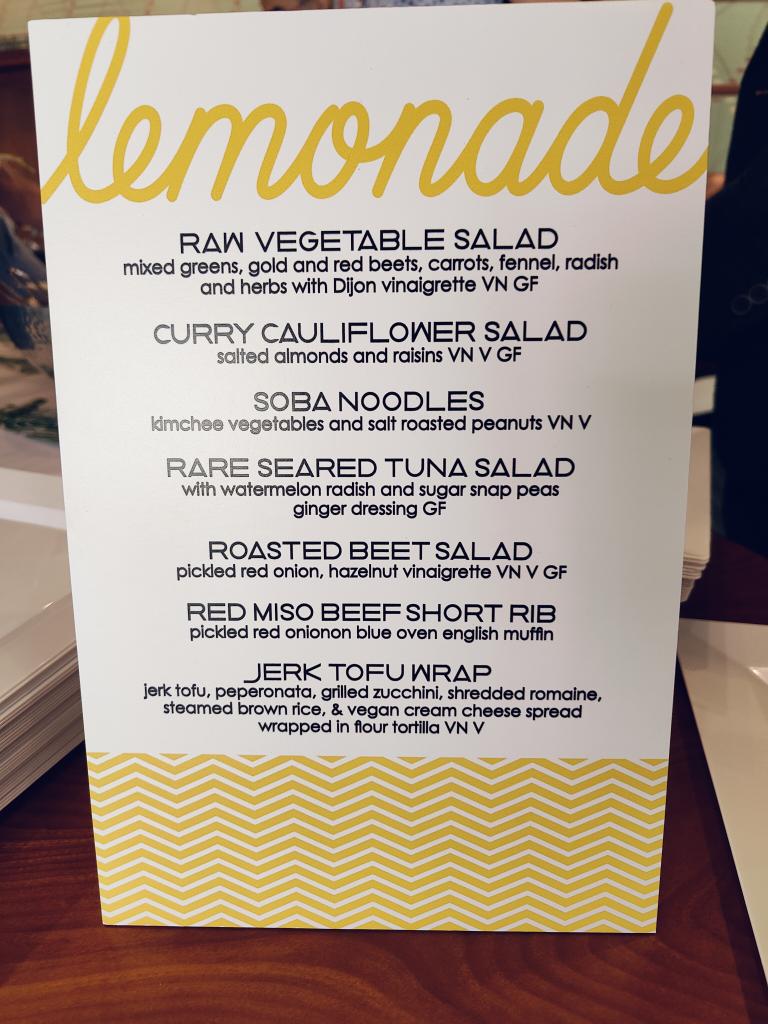 lemonade
RAW VEGETABLE SALAD
mixed greens, gold and red beets, carrots, fennel, radish
and herbs with Dijon vinaigrette VN GF
CURRY CAULIFLOWER SALAD
salted almonds and raisins VN V GF
SOBA NOODLES
kimchee vegetables and salt roasted peanuts VN V
RARE SEARED TUNA SALAD
with watermelon radish and sugar snap peas
ginger dressing GF
ROASTED BEET SALAD
pickled red onion, hazelnut vinaigrette VN V GF
RED MISO BEEF SHORT RIB
pickled red onionon blue oven english muffin
JERK TOFU WRAP
jerk tofu, peperonata, grilled zucchini, shredded romaine,
steamed brown rice, & vegan cream cheese spread
wrapped in flour tortilla VN V